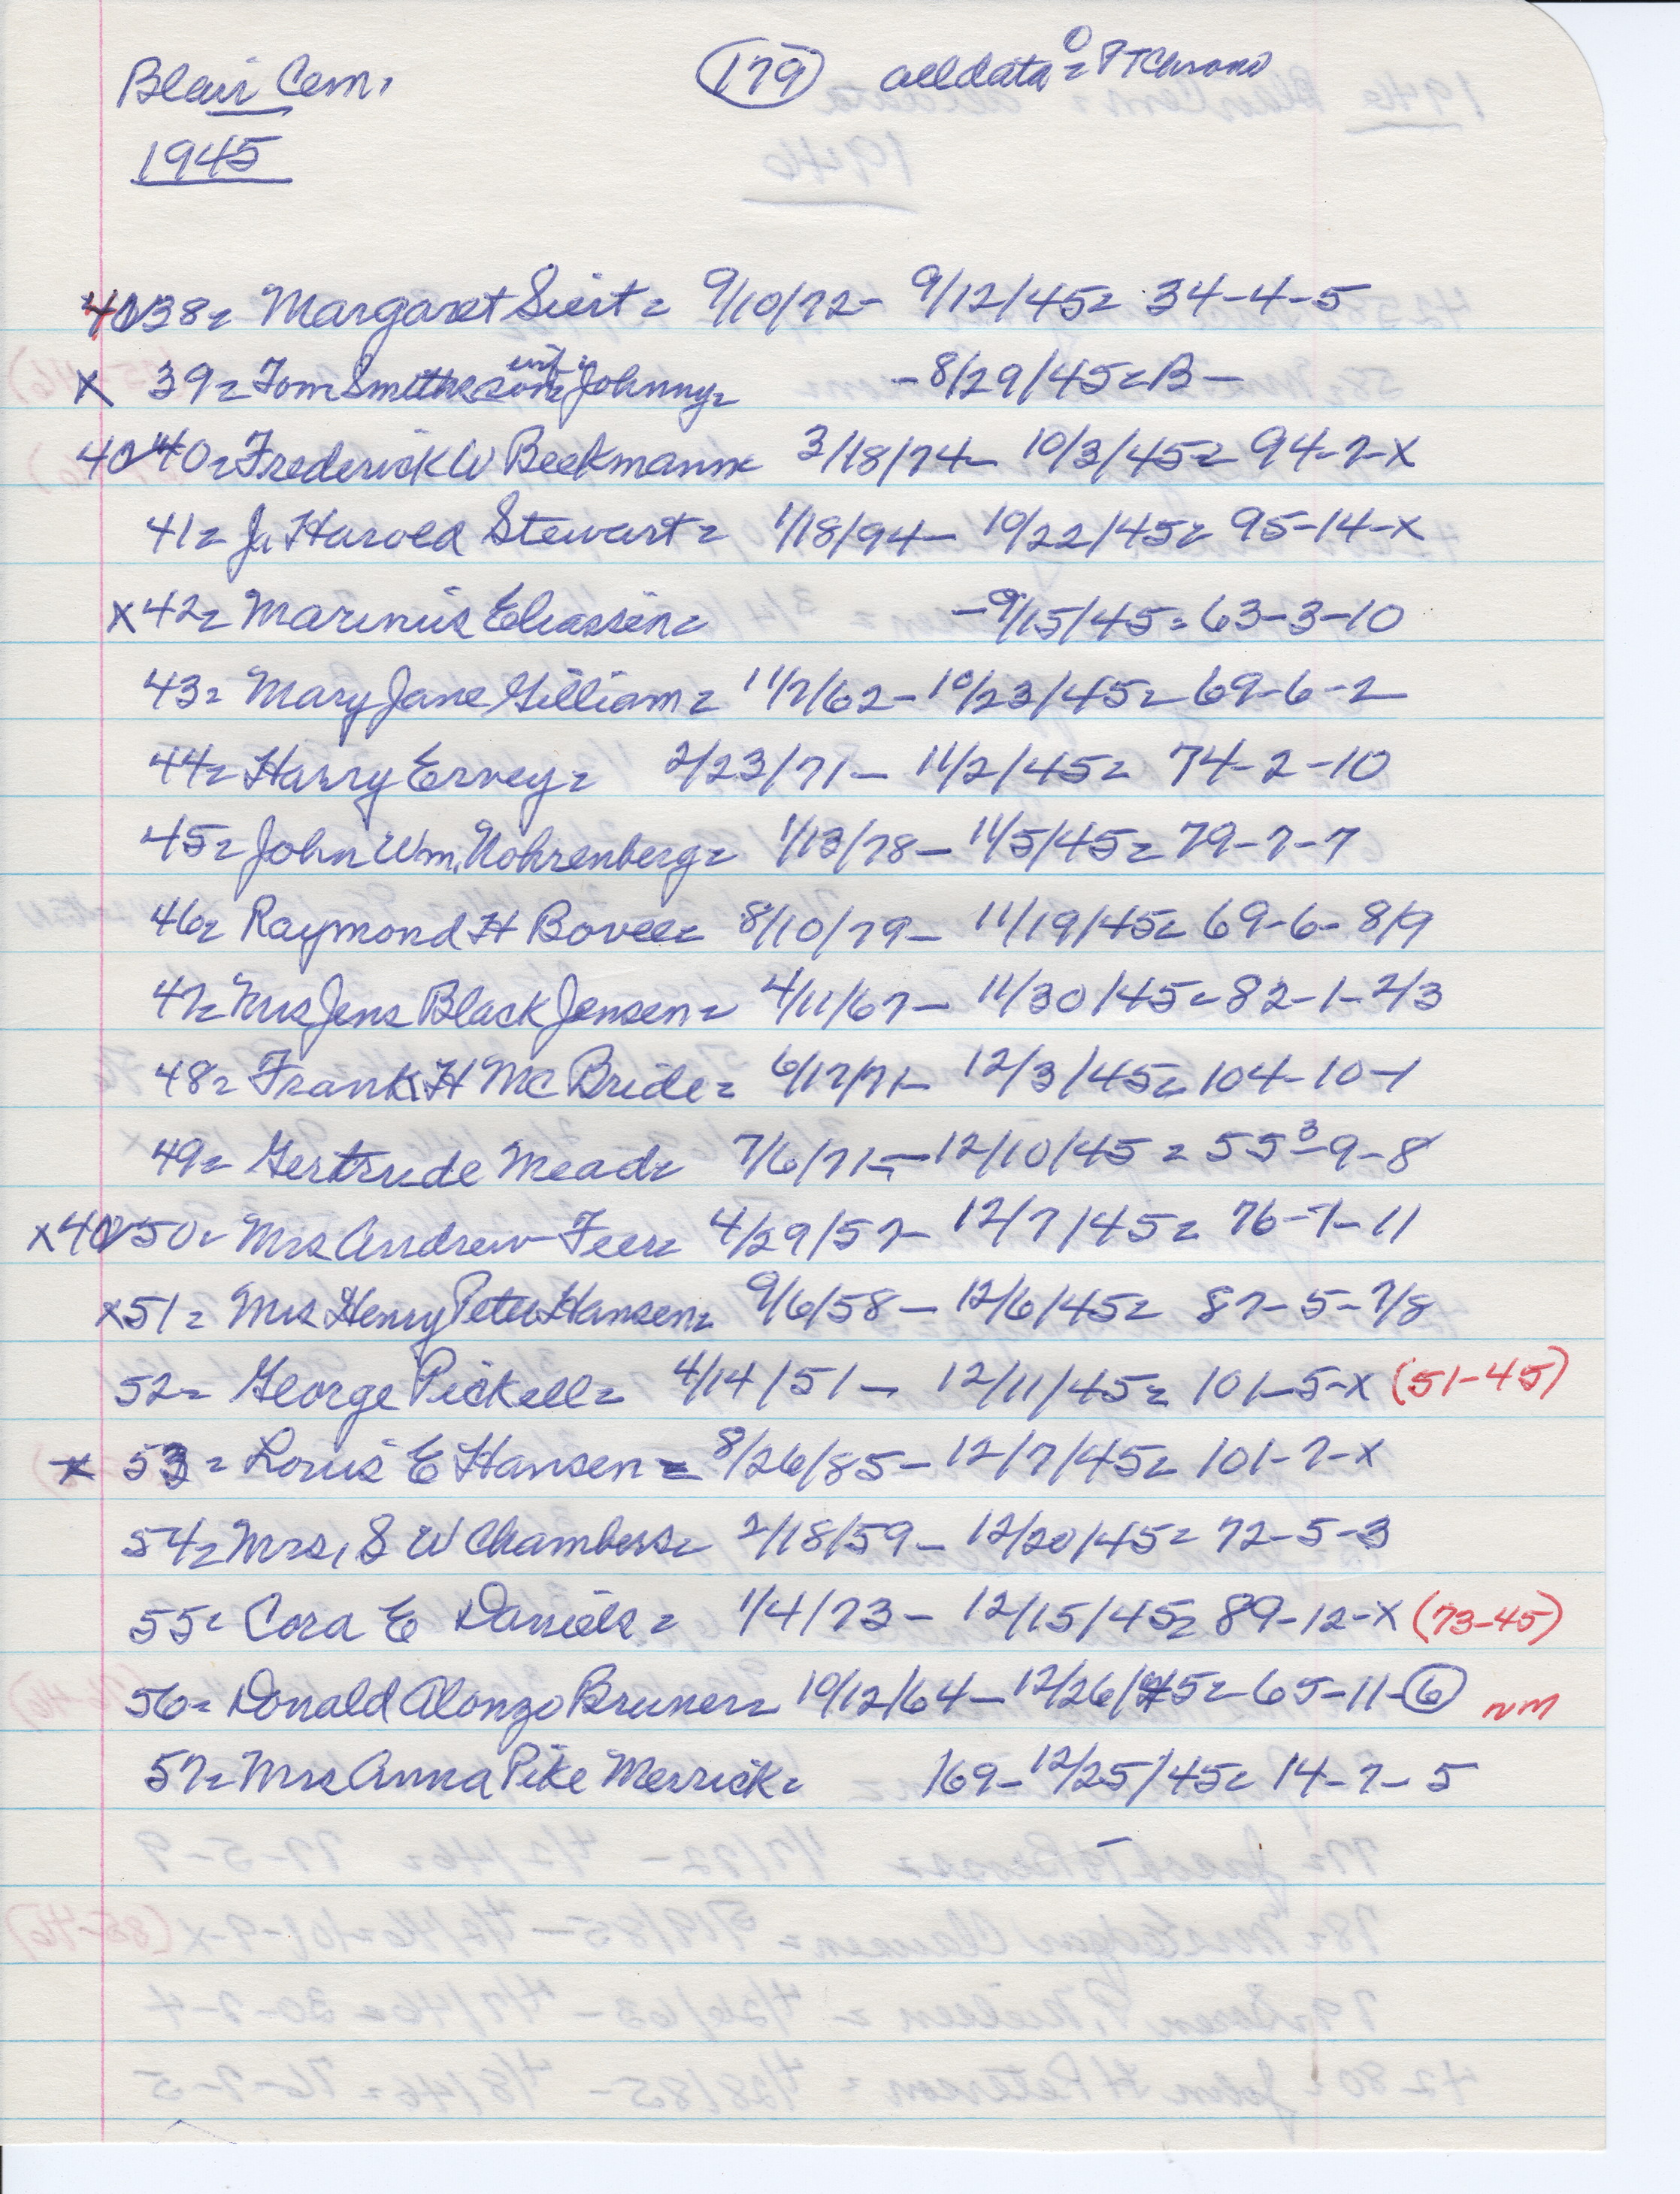 Blair Cem. (179) alldata = PTChrono
1945
4038 = Margaret Siert = 9/10/72 - 9/12/45 = 34-4-5
X 39 = Tom Smith son Johnny = - 8/29/45 = B -
4040 = Frederick W Beekmann = 3/18/74 - 10/3/45 = 94-7-X
41 = J. Harold Stewart = 1/18/94 - 10/22/45 = 95-14-X
X 42 = Marinus Eliassen = - 9/15/45 = 63-3-10
43 = Mary Jane Gilliam = 11/7/62 - 10/23/45 = 69-6-2
44 = Harry Ervey = 2/23/71 - 11/2/45 = 74-2-10
45 = John Wm. Nohrenberg = 1/13/78 - 11/5/45 = 79-7-7
46 = Raymond H Bovee = 8/10/79 - 11/19/45 = 69-6-8/9
47 = Mrs Jens Black Jensen = 4/11/67 - 11/30/45 = 82-1-2/3
48 = Frank H McBride = 6/17/71 - 12/3/45 = 104-10-1
49 = Gertrude Mead = 7/6/71 - 12/10/45 = 55³-9-8
X 4050 = Mrs Andrew Feer = 4/29/57 - 12/7/45 = 76-7-11
X 51 = Mrs Henry Peter Hansen = 9/6/58 - 12/6/45 = 87-5-7/8
52 = George Pickell = 4/14/51 - 12/11/45 = 101-5-X (51-45)
X 53 = Louis E Hansen = 8/26/85 - 12/7/45 = 101-7-X
54 = Mrs. S W Chambers = 2/18/59 - 12/20/45 = 72-5-3
55 = Cora E Daniels = 1/4/73 - 12/15/45 = 89-12-X (73-45)
56 = Donald Alonzo Bruner = 10/12/64 - 12/26/45 = 65-11-(6) NM
57 = Mrs Anna Pike Merrick = /69 - 12/25/45 = 14-7-5